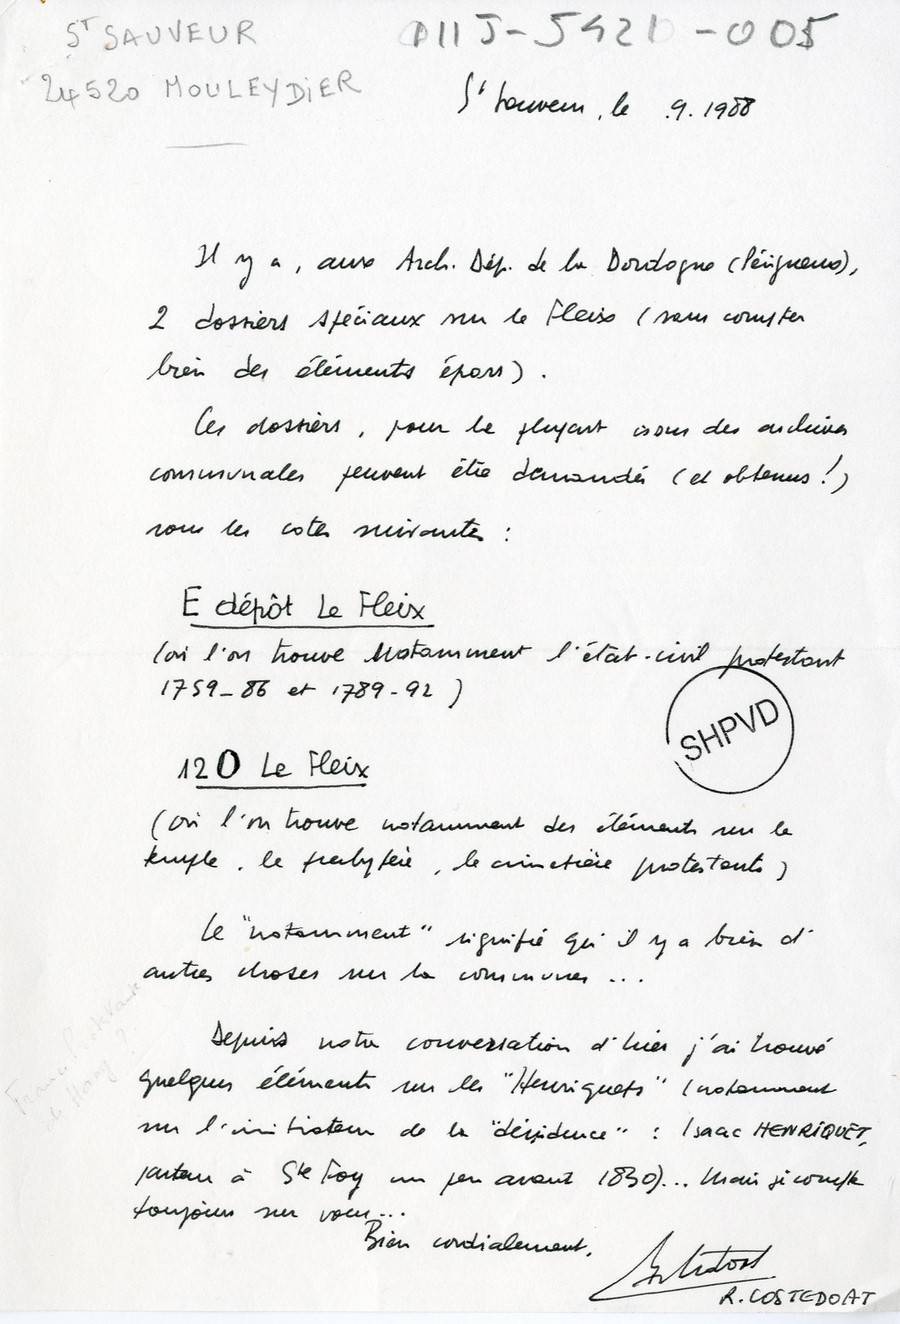 ST SAUVEUR
24520 MOULEYDIER
011J-5421-005
St Sauveur, le .9.1988
Il y a, aux Arch. Dép. de la Dordogne (Périgueux),
2 dossiers spéciaux sur le Fleix (sans compter
bien des éléments épars).
Ces dossiers, pour la plupart issus des archives
communales peuvent être demandés (et obtenus!)
sous les cotes suivantes :
E dépôt Le Fleix
(où l'on trouve notamment l'état-civil protestant
1759-86 et 1789-92)
SHPVD
12O Le Fleix
(où l'on trouve notamment des éléments sur le
temple, le presbytère, le cimetière protestants)
Le "notamment" signifie qu'il y a bien d'
autres choses sur la commune ...
Depuis notre conversation d'hier j'ai trouvé
quelques éléments sur les "Henriquets" (notamment
sur l'initiateur de la "dissidence" : Isaac HENRIQUET,
pasteur à Ste Foy un peu avant 1830)... Mais je compte
toujours sur vous...
Bien cordialement.
R. COSTEDOAT